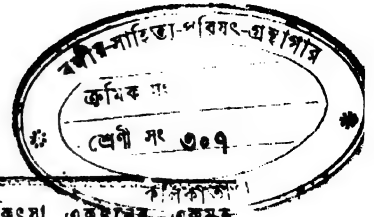 বঙ্গীয়-সাহিত্য-পরিষৎ-গ্রন্থাগার
ক্রমিক সং
শ্রেণী সং ৩০৭
কলিকাতা।